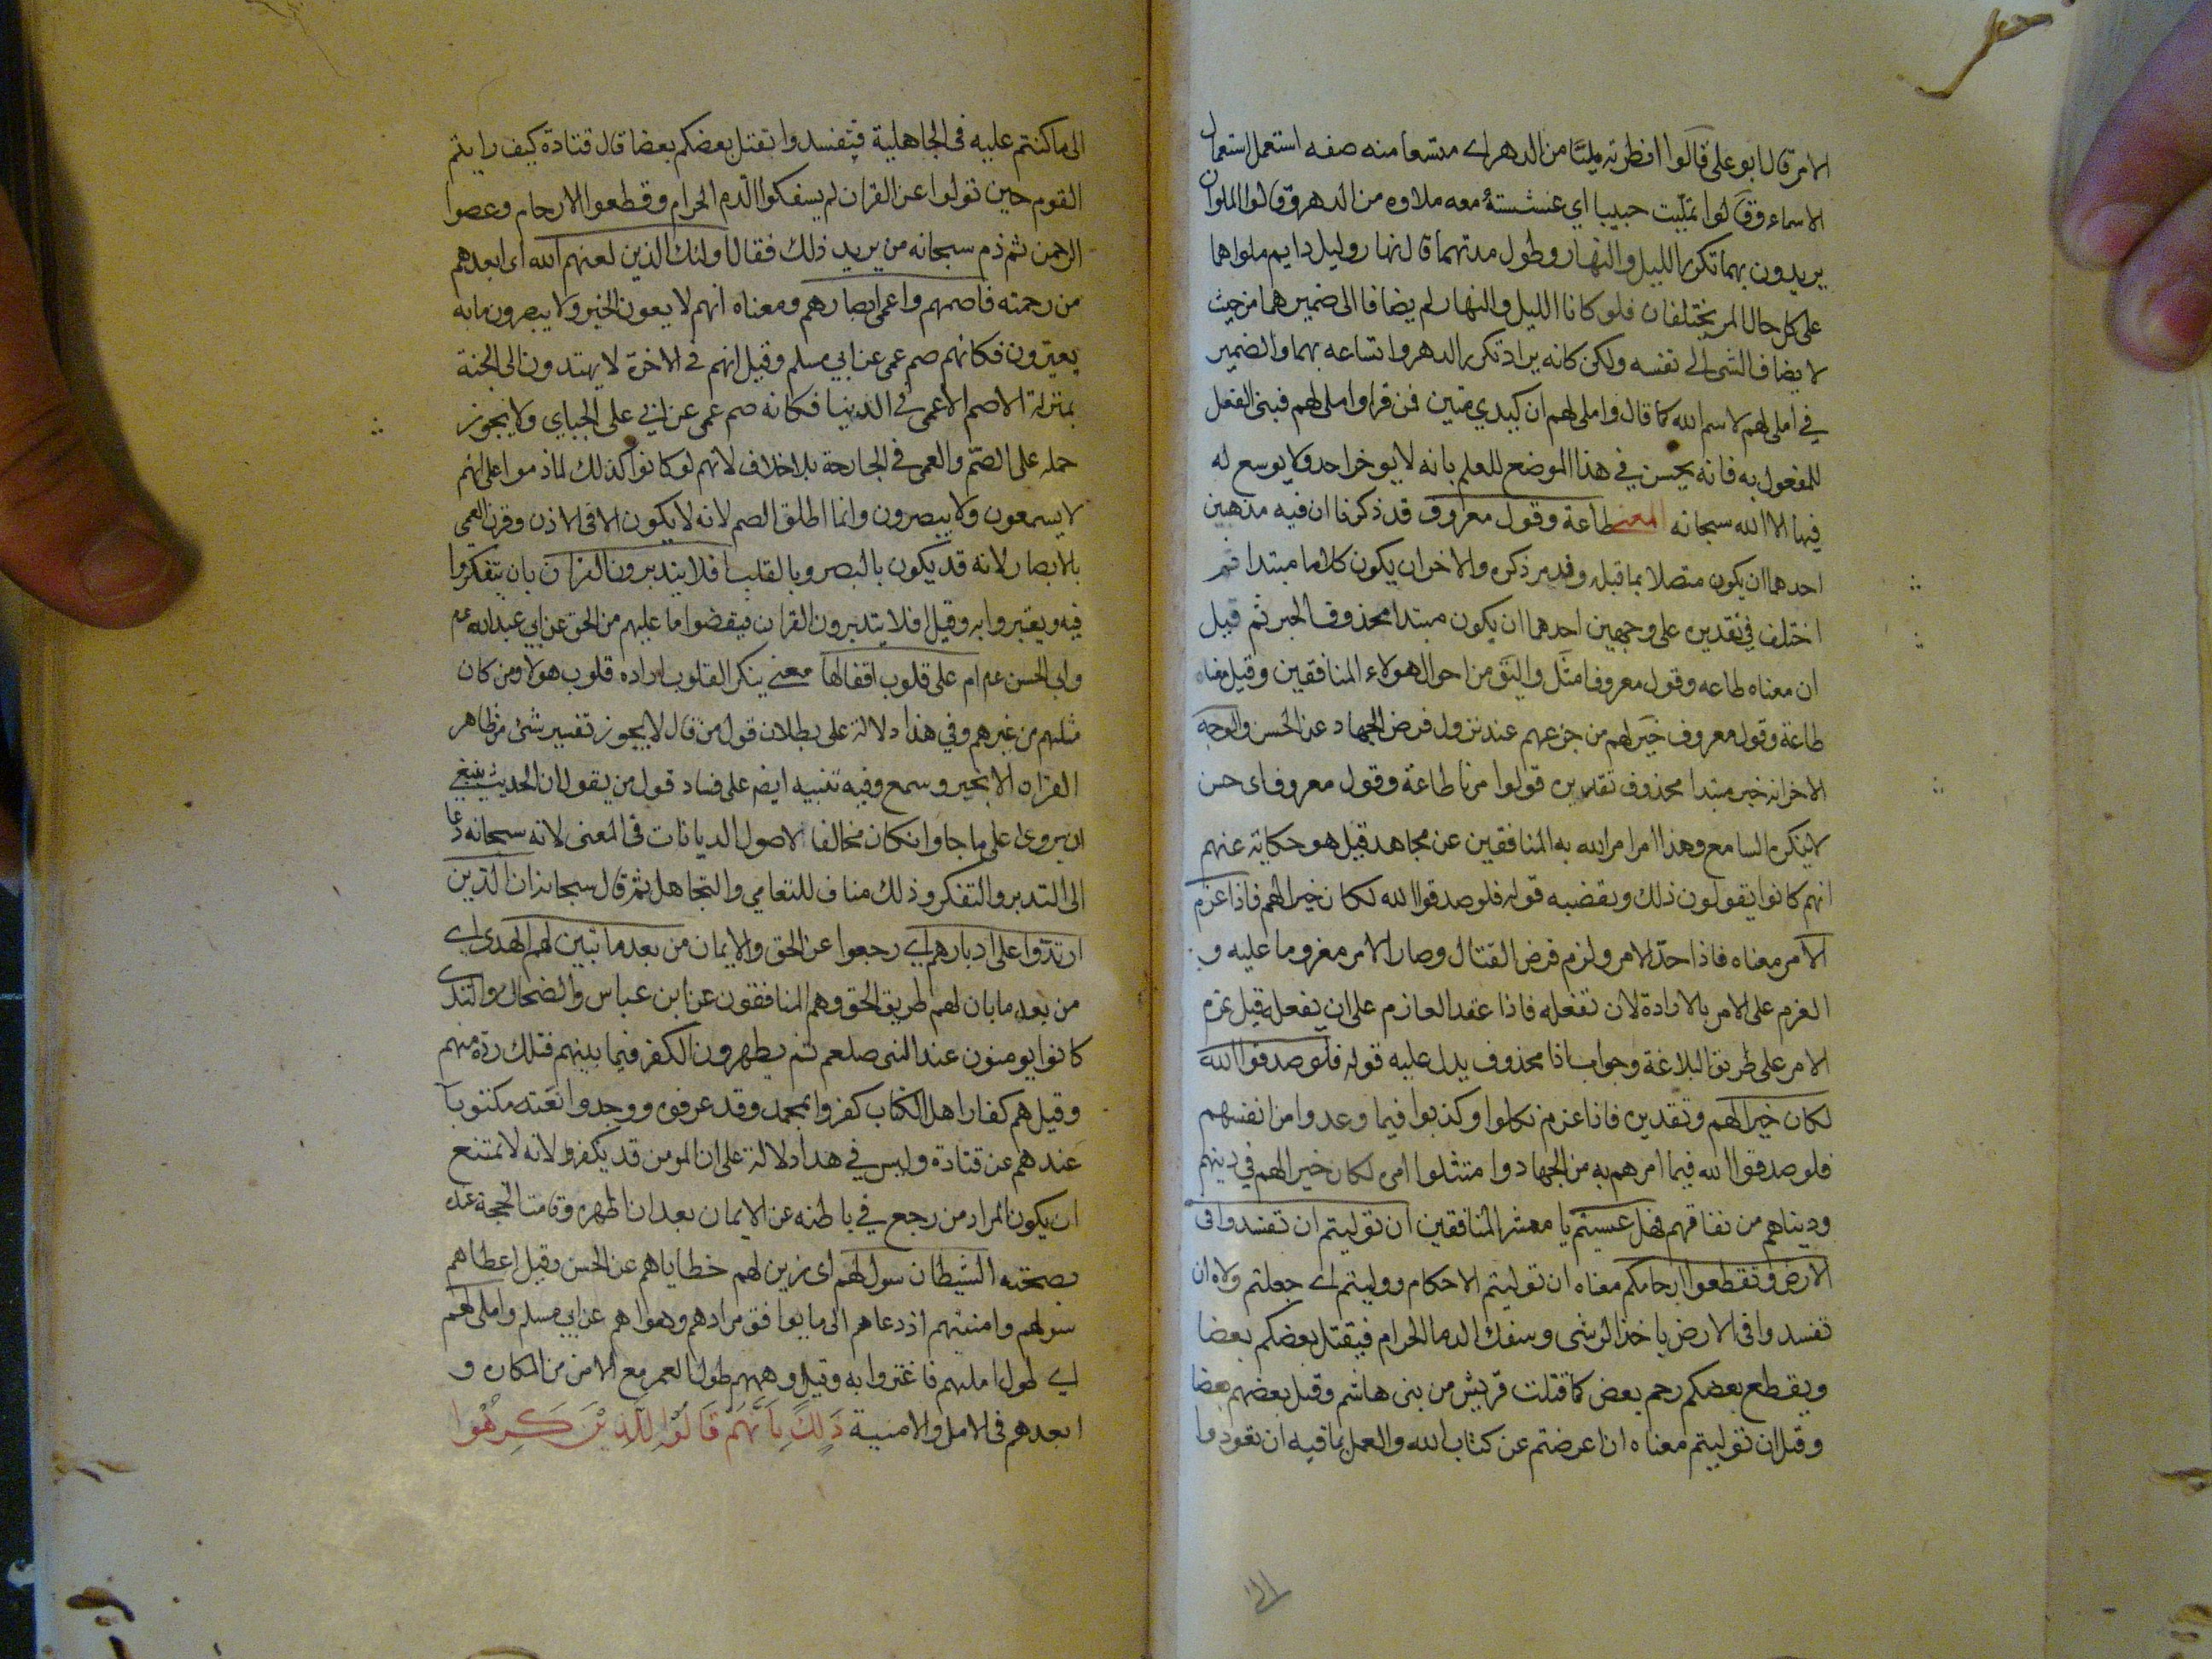 الامر قال ابو على قالوا انظرته مليّا من الدهر اے متسعا منه صفه استعمل استعمال
الاسماء وقالوا تمليت حبيبا اي عشت معه ملاوه من الدهر وقالوا الملوان
يريدون بهما تكرر الليل والنهار وطول مدتهما قال نهار وليل دايم ملواهما
على كل حال المر يختلفان فلو كانا الليل والنهار لم يضافا الى ضميرهما من حيث
لا يضاف الشى الى نفسه ولكن كانه يراد تكرر الدهر واتساعه بهما والضمير
في املى لهم لاسم الله كما قال واملى لهم ان كيدي متين فمن قرا واملى لهم فبنى الفعل
للمفعول به فانه يحسن في هذا الموضع للعلم بانه لا يوخر احد ولا يوسع له
فيها الا الله سبحانه المعنى طاعة وقول معروف قد ذكرنا ان فيه مذهبين
احدهما ان يكون متصلا بما قبله وقد مر ذكره والاخر ان يكون كلاما مبتدا ثم
اختلف في تقديره على وجهين احدهما ان يكون مبتدا محذوف الخبر ثم قيل
ان معناه طاعه وقول معروف امثل واليق من احوال هولاء المنافقين وقيل معناه
طاعة وقول معروف خير لهم من جزعهم عند نزول فرض الجهاد عن الحسن والوجه
الاخر انه خبر مبتدا محذوف تقديره قولوا امرنا طاعة وقول معروف اى حسن
لا ينكره السامع وهذا امر امر الله به المنافقين عن مجاهد وقيل هو حكاية عنهم
انهم كانوا يقولون ذلك ويقضيه قوله فلو صدقوا الله لكان خيرا لهم فاذا عزم
الامر معناه فاذا جدّ الامر ولزم فرض القتال وصار الامر معزوما عليه و
العزم على الامر بالارادة لان تفعله فاذا عقد العازم على ان يفعله قيل عزم
الامر على طريق البلاغة وجواب اذا محذوف يدل عليه قوله فلو صدقوا الله
لكان خيرا لهم وتقديره فاذا عزم نكلوا وكذبوا فيما وعدوا من انفسهم
فلو صدقوا الله فيما امرهم به من الجهاد وامتثلوا امره لكان خيرا لهم في دينهم
ودنياهم من نفاقهم فهل عسيتم يا معشر المنافقين ان توليتم ان تفسدوا فى
الارض وتقطعوا ارحامكم معناه ان توليتم الاحكام ووليتم اے جعلتم ولاة ان
تفسدوا فى الارض باخذ الرشى وسفك الدما الحرام فيقتل بعضكم بعضا
ويقطع بعضكم رحم بعض كما قتلت قريش من بنى هاشم وقتل بعضهم بعضا
وقيل ان توليتم معناه ان اعرضتم عن كتاب الله والعمل بما فيه ان تعودوا
الى ما كنتم عليه فى الجاهلية فتفسدوا بقتل بعضكم بعضا قال قتادة كيف رايتم
القوم حين تولوا عن القران لم يسفكوا الدم الحرام وقطعوا الارحام وعصوا
الرحمن ثم ذم سبحانه من يريد ذلك فقال اولئك الذين لعنهم الله اى ابعدهم
من رحمته فاصمهم واعمى ابصارهم ومعناه انهم لا يعون الخير ولا يبصرون ما به
يعتبرون فكانهم صم عمى عن ابي مسلم وقيل انهم في الاخرة لا يهتدون الى الجنة
بمنزلة الاصم الاعمى في الدنيا فكانه صم عمى عن ابي على الجباي ولا يجوز
حمله على الصّم والعمى في الجارحة بلا خلاف لانهم لو كانوا كذلك لما ذموا على انهم
لا يسمعون ولا يبصرون وانما اطلق الصم لانه لا يكون الا فى الاذن وقرن العمى
بالابصار لانه قد يكون بالبصر وبالقلب افلا يتدبرون القران بان يتفكروا
فيه ويعتبروا به وقيل افلا يتدبرون القران فيقضوا ما عليهم من الحق عن ابي عبد الله عم
وابى الحسن عم ام على قلوب اقفالها معنى ينكر القلوب اراده قلوب هولا ومن كان
مثلهم من غيرهم وفي هذا دلالة على بطلان قول من قال لا يجوز تفسير شئ من ظاهر
القران الا بخبر وسمع وفيه تنبيه ايضم على فساد قول من يقول ان الحديث ينبغي
ان يروى على ما جا وان كان مخالفا لاصول الديانات فى المعنى لانه سبحانه دعا
الى التدبر والتفكر وذلك مناف للتعامي والتجاهل ثم قال سبحانه ان الذين
ارتدوا على ادبارهم اے رجعوا عن الحق والايمان من بعد ما تبين لهم الهدى اے
من بعد ما بان لهم طريق الحق وهم المنافقون عن ابن عباس والضحاك والسدى
كانوا يومنون عند النبى صلعم ثم يظهرون الكفر فيما بينهم فتلك ردة منهم
وقيل هم كفار اهل الكتاب كفروا بمحمد وقد عرفوه ووجدوا نعته مكتوبا
عندهم عن قتادة وليس في هذا دلالة على ان المومن قد يكفر لانه لا يمتنع
ان يكون المراد من رجع في باطنه عن الايمان بعد ان اظهره وقامت الحجة عنده
بصحته الشيطان سول لهم اى زين لهم خطاياهم عن الحسن وقيل اعطاهم
سولهم وامنيتهم اذ دعاهم الى ما يوافق مرادهم وهواهم عن ابي مسلم واملى لهم
اے طول املهم فاغتروا به وقيل وهمهم طول العمر مع الامن من المكاره و
ابعدهم فى الامل والامنية ذَلِكَ بِاَنَّهُم قَالُوا لِلَّذِيْنَ كَرِهُوا